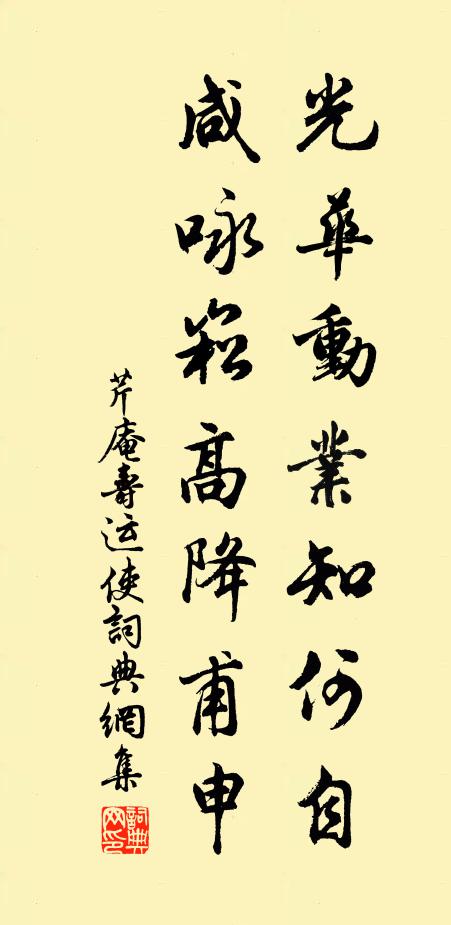 光華動業知何自
咸咏崧高降甫申
芹庵壽运使詞典網集
詞典網印